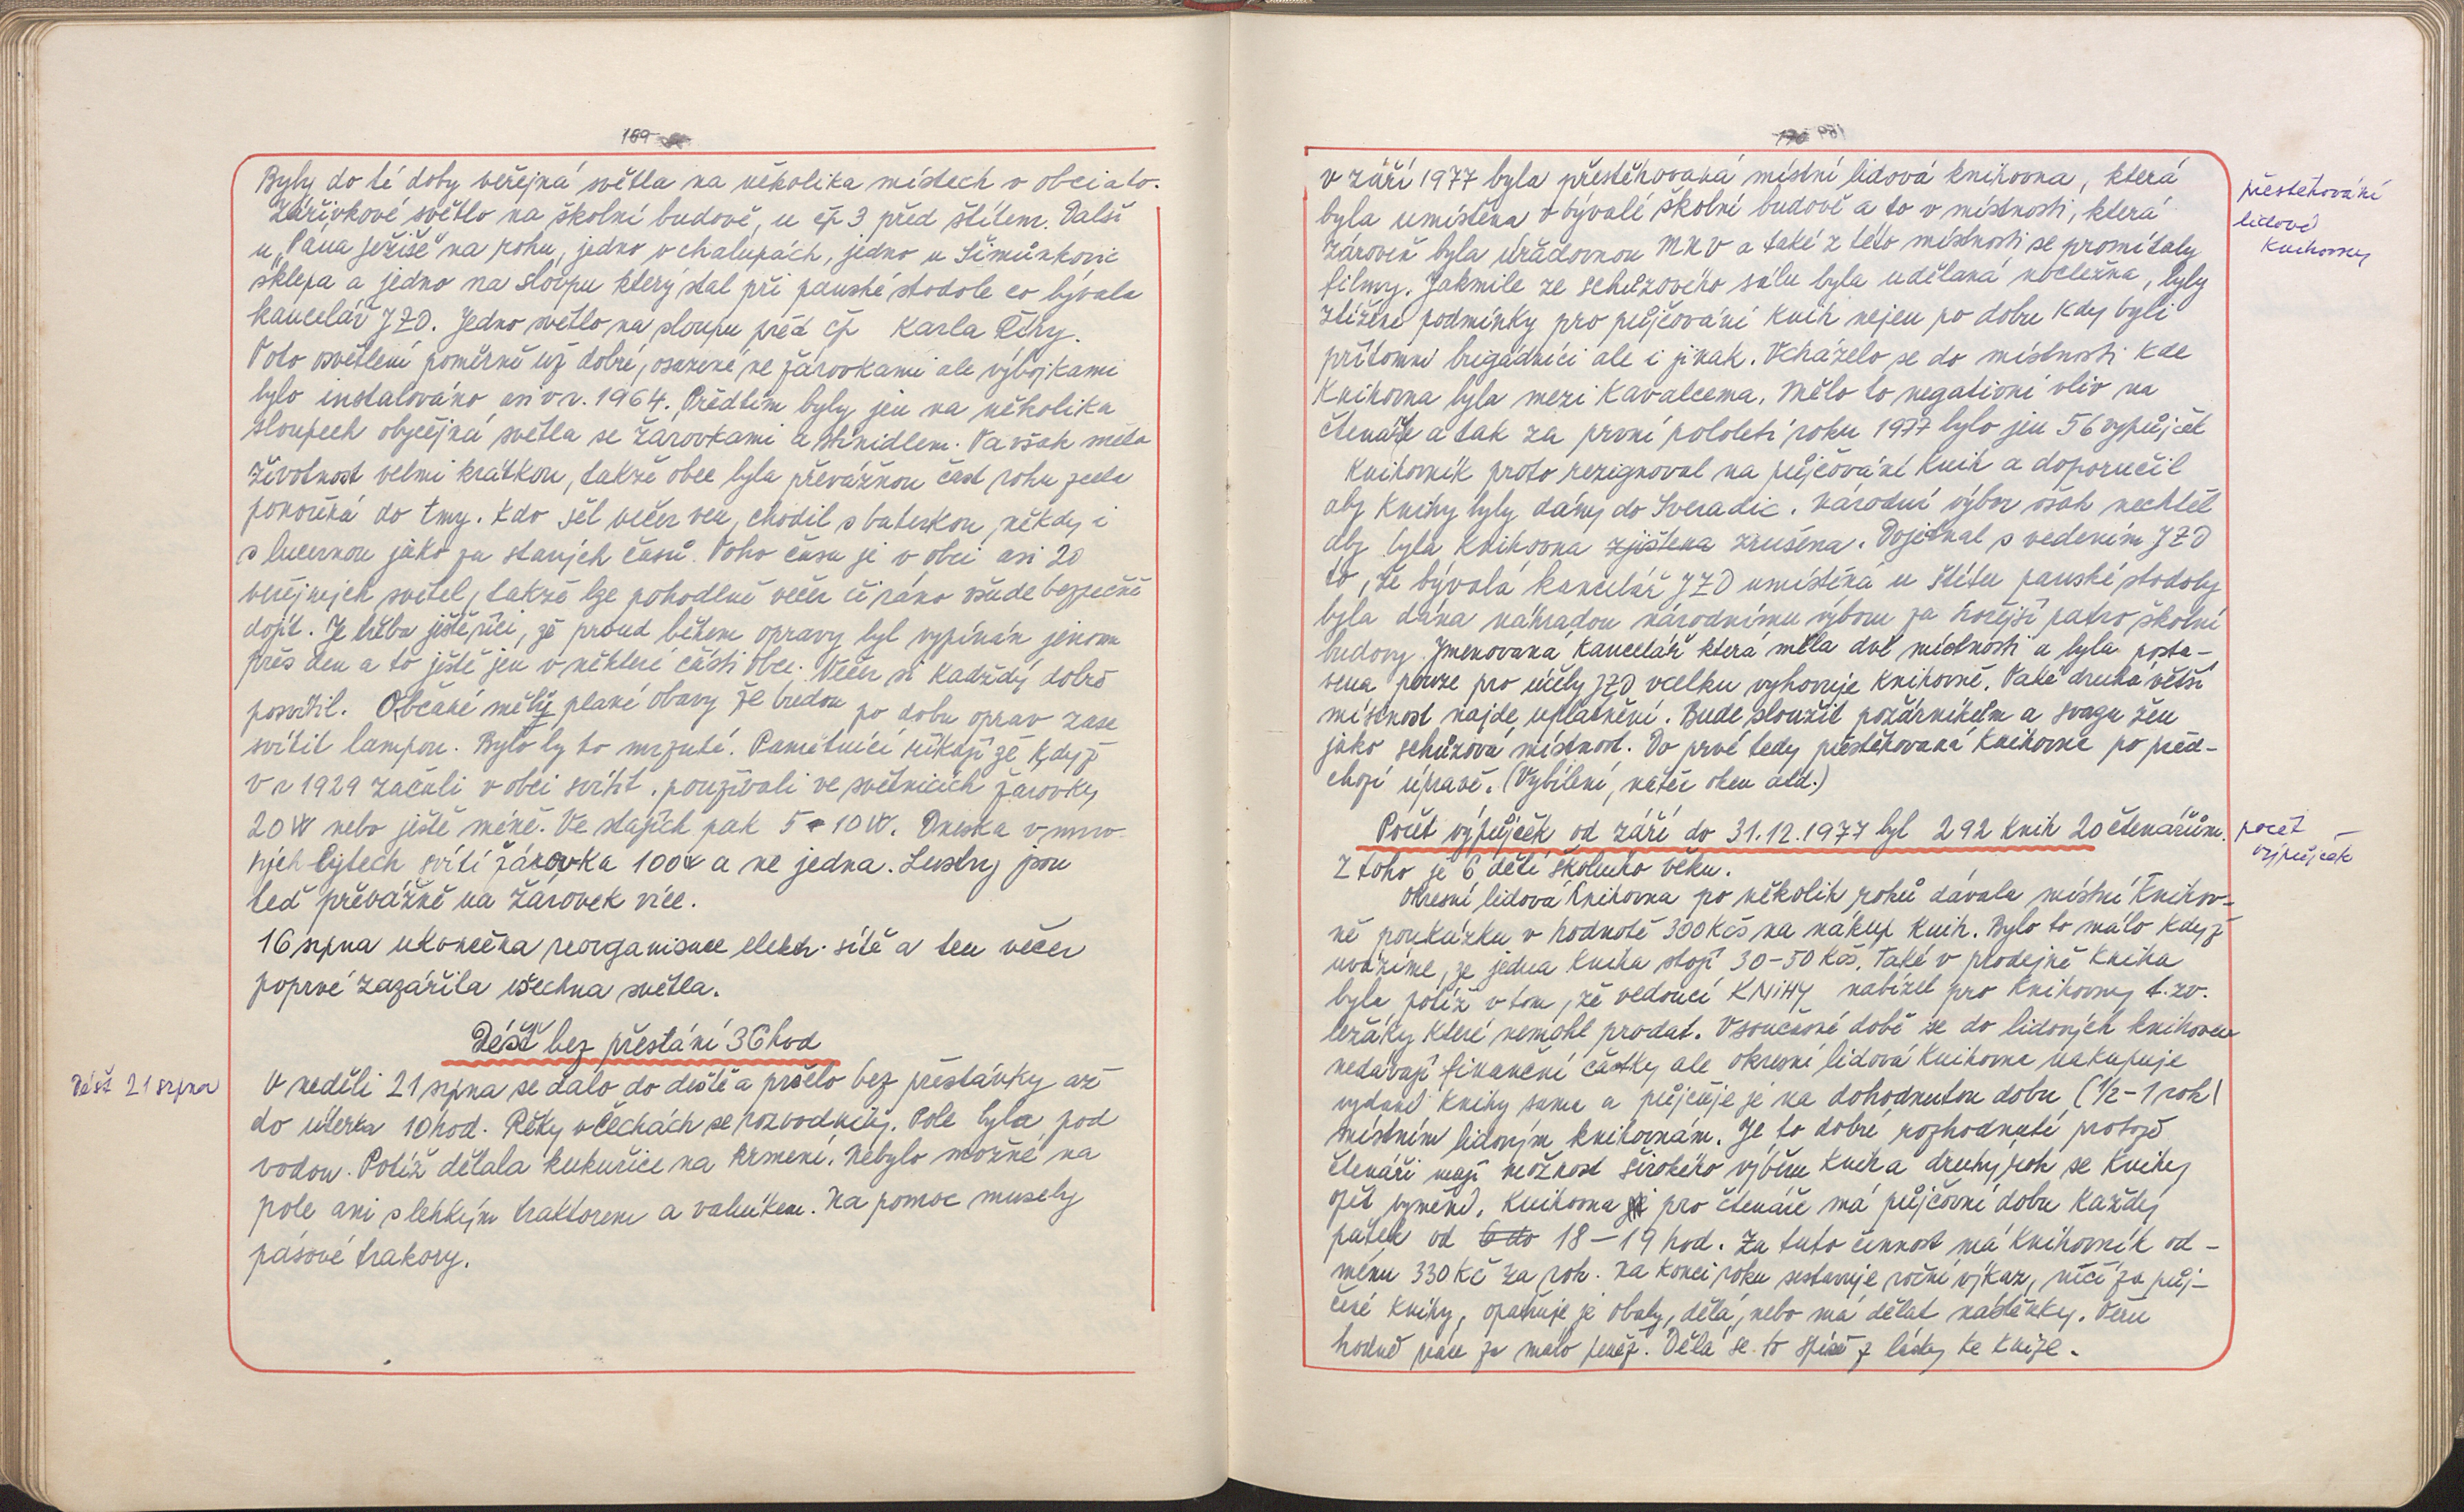 169
Byly do té doby veřejná světla na několika místech v obci a to.
Zářivkové světlo na školní budově, u čp 3 před štítem. Další
u „Pana Ježíše" na rohu, jedno v chalupách, jedno u Šimůnkovic
sklepa a jedno na sloupu který stal při panské stodole co bývala
kancelář JZD. Jedno světlo na sloupu před čp Karla Říhy.
Toto osvětlení poměrně už dobré, osazené ne žárovkami ale výbojkami
bylo instalováno asi v r. 1964. Předtím byly jen na několika
sloupech obyčejná světla se žárovkami a stínidlem. Ta však měla
životnost velmi krátkou, takže obec byla převážnou část roku zcela
ponořená do tmy. Kdo šel večer ven, chodil s baterkou, někdy i
s lucernou jako za starých časů. Toho času je v obci asi 20
veřejných světel, takže lze pohodlně večer či ráno všude bezpečně
dojít. Je třeba ještě říci, že proud během opravy byl vypínán jenom
přes den a to ještě jen v některé části obce. Večer si kadždý dobře
posvítil. Občané měli plané obavy že budou po dobu oprav zase
svítit lampou. Bylo by to mrzuté. Pamětníci říkají že když
v r 1929 začali v obci svítit. používali ve světnicích žárovky
20 W nebo ještě méně. Ve stájích pak 5-10 W. Dneska v mno
hých bytech svítí žárovka 100W a ne jedna. Lustry jsou
teď převážně na žárovek více.
16 srpna ukončena reorganisace elektr. sítě a ten večer
poprvé zazářila všechna světla.
Déšť bez přestání 36 hod
Déšť 21 srpna
V neděli 21 srpna se dalo do deště a pršelo bez přestávky až
do úterka 10 hod. Řeky v Čechách se rozvodnily. Pole byla pod
vodou. Potíž dělala kukuřice na krmení. Nebylo možné na
pole ani s lehkým traktorem a valníkem. Na pomoc musely
pásové trakory.
169
v září 1977 byla přestěhovaná místní lidová knihovna, která
byla umístěna v bývalé školní budově a to v místnosti, která
zároveň byla úřadovnou MNV a také z této místnosti se promítaly
filmy. Jakmile ze schůzového sálu byla udělaná nocležna, byly
ztížené podmínky pro půjčování knih nejen po dobu kdy byli
přítomni brigádníci ale i jinak. Vcházelo se do místnosti kde
knihovna byla mezi kavalcema. Mělo to negativní vliv na
čtenáře a tak za první pololetí roku 1977 bylo jen 56 výpůjček
Knihovník proto rezignoval na půjčování knih a doporučil
aby knihy byly dány do Sveradic. Národní výbor však nechtěl
aby byla knihovna zjištena zrušena. Dojednal s vedením JZD
to, že bývalá kancelář JZD umístěná u štítu panské stodoly
byla dána náhradou národnímu výboru za hořejší patro školní
budovy. Jmenovaná kancelář která měla dvě místnosti a byla posta-
vena pouze pro účely JZD vcelku vyhovuje knihovně. Také druhá větší
místnost najde uplatnění. Bude sloužit požárníkům a svazu žen
jako schůzová místnost. Do prvé tedy přestěhovaná knihovna po před-
chozí úpravě. (Vybílení, nátěr oken atd.)
přestěhování
lidové
knihovny
Počet výpůjček od září do 31.12.1977 byl 292 knih 20 čtenářům.
počet
výpůjček
Z toho je 6 dětí školního věku.
Okresní lidová knihovna po několik roků dávala místní knihov-
ně poukázku v hodnotě 300 Kčs na nákup knih. Bylo to málo když
uvážíme, že jedna kniha stojí 30-50 Kčs. Také v prodejně kniha
byla potíž v tom, že vedoucí KNIHY nabízel pro knihovny t. zv.
ležáky které nemohl prodat. V současné době se do lidových knihoven
nedávají finanční částky ale okresní lidová knihovna nakupuje
vydané knihy sama a půjčuje je na dohodnutou dobu (1/2-1 rok)
místním lidovým knihovnám. Je to dobré rozhodnutí protože
čtenáři mají možnost širokého výběru knih a druhý rok se knihy
opět vymění. Knihovna pro čtenáře má půjčovní dobu každý
pátek od 6 do 18-19 hod. Za tuto činnost má knihovník od-
měnu 330 Kč za rok. Na konci roku sestavuje roční výkaz, ručí za půj-
čené knihy, opatřuje je obaly, dělá, nebo má dělat nástěnky. Věru
hodně práce za málo peněz. Dělá se to spíše z lásky ke knize.